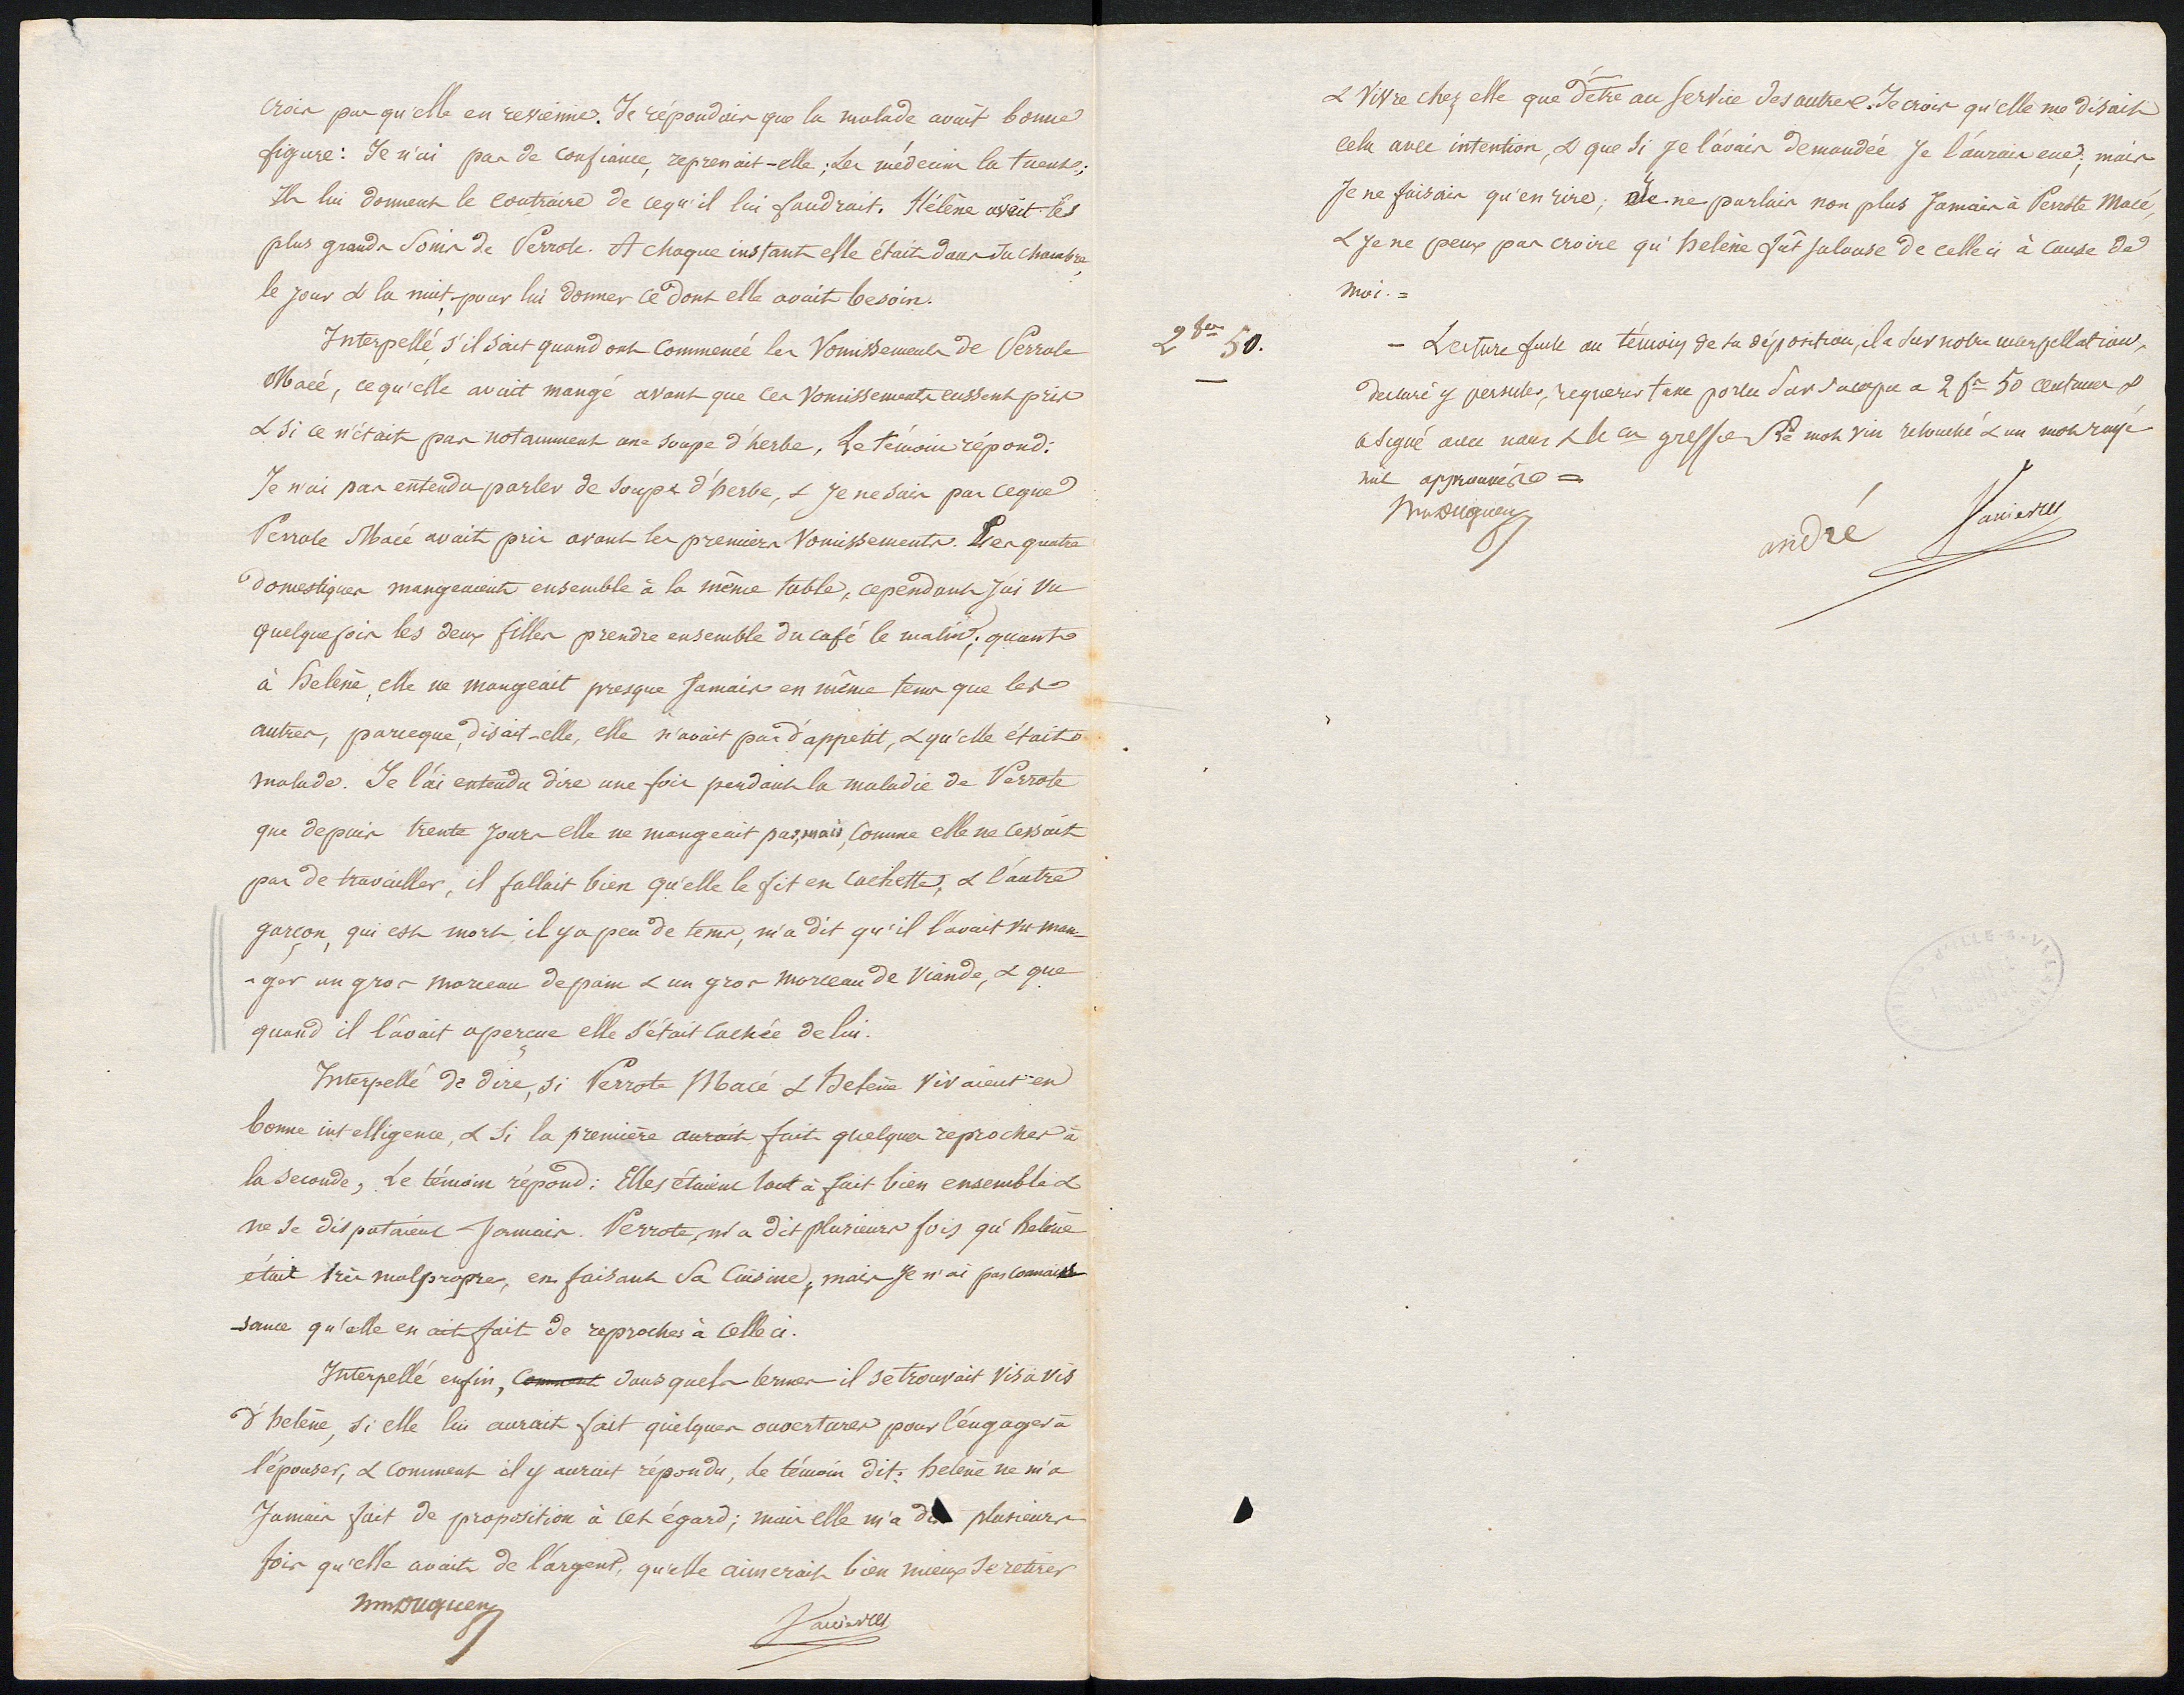 crois pas qu'elle en revienne. Je répondais que la malade avait bonne
figure: Je n'ai pas de confiance, reprenait-elle; Les médecins la tuent;
Ils lui donnent le contraire de ce qu'il lui faudrait. Hélène avait les
plus grands soins de Perrote. A chaque instant elle était dans sa chambre,
le jour & la nuit, pour lui donner ce dont elle avait besoin.
Interpellé s'il sait quand ont commencé les vomissements de Perrote
Macé, ce qu'elle avait mangé avant que ces vomissements eussent pris
& si ce n'était pas notamment une soupe d'herbe, Le témoin répond:
Je n'ai pas entendu parler de soupe d'herbe, & je ne sais pas ce que
Perrote Macé avait pris avant les premiers vomissements. Les quatre
domestiques mangeaient ensemble à la même table, cependant j'ai vu
quelquefois les deux filles prendre ensemble du café le matin; quant
à helène, elle ne mangeait presque jamais en même tems que les
autres, parceque, disait-elle, elle n'avait pas d'appetit, & qu'elle était
malade. Je l'ai entendu dire une fois pendant la maladie de Perrote
que depuis trente jours elle ne mangeait pas, mais, comme elle ne cessait
pas de travailler, il fallait bien qu'elle le fit en cachette, & l'autre
garçon, qui est mort il y a peu de tems, m'a dit qu'il l'avait vu man-
-ger un gros morceau de pain & un gros morceau de viande, & que
quand il l'avait aperçue elle s'était cachée de lui.
Interpellé de dire, si Perrote Macé & helène vivaient en
bonne intelligence, & si la première aurait fait quelques reproches à
la seconde, Le témoin répond: Elles étaient tout à fait bien ensemble &
ne se disputaient jamais. Perrote, m'a dit plusieurs fois qu'helène
était très malpropre, en faisant sa cuisine, mais je n'ai pas connais
-sance qu'elle en ait fait de reproches à celle ci.
Interpellé enfin, comment dans quels termes il se trouvait vis à vis
d'helène, si elle lui aurait fait quelques ouvertures pour l'engager à
l'épouser, & comment il y aurait répondu, Le témoin dit: helène ne m'a
jamais fait de proposition à cet égard; mais elle m'a dit plusieurs
fois qu'elle avait de l'argent, qu'elle aimerait bien mieux se retirer
& vivre chez elle que d'être au service des autres. Je crois qu'elle me disait
cela avec intention, & que si je l'avais demandée je l'aurais eue; mais
je ne faisais qu'en rire; Je ne parlais non plus jamais à Perrote Macé,
& je ne peux pas croire qu'helène fût jalouse de celle ci à cause de
moi. =
2 fr 50.
- Lecture faite au témoin de sa déposition, il a sur notre interpellation,
déclaré y persister, requerir taxe portée sur sa copie a 2 fr 50 centimes &
a signé avec nous & le Cis greffier Le mot vin retouché & un mot rayé
nul approuvés =
andré